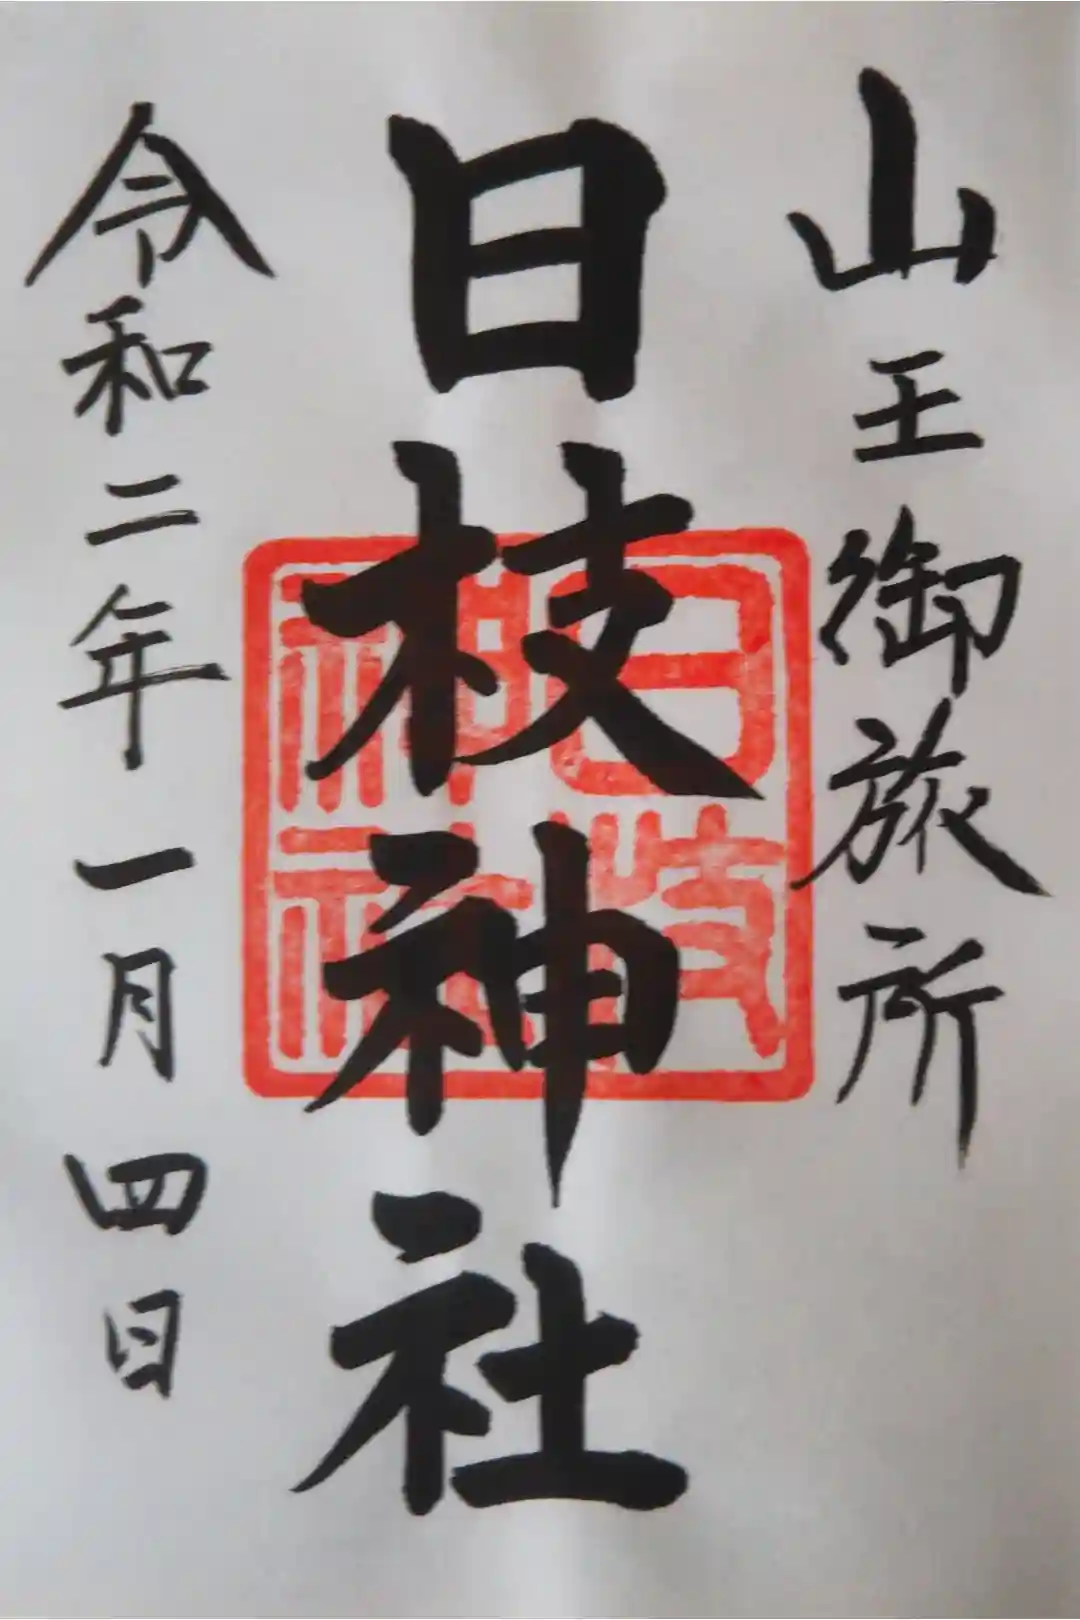 山王御旅所
日枝神社
令和二年一月四日
日枝神社